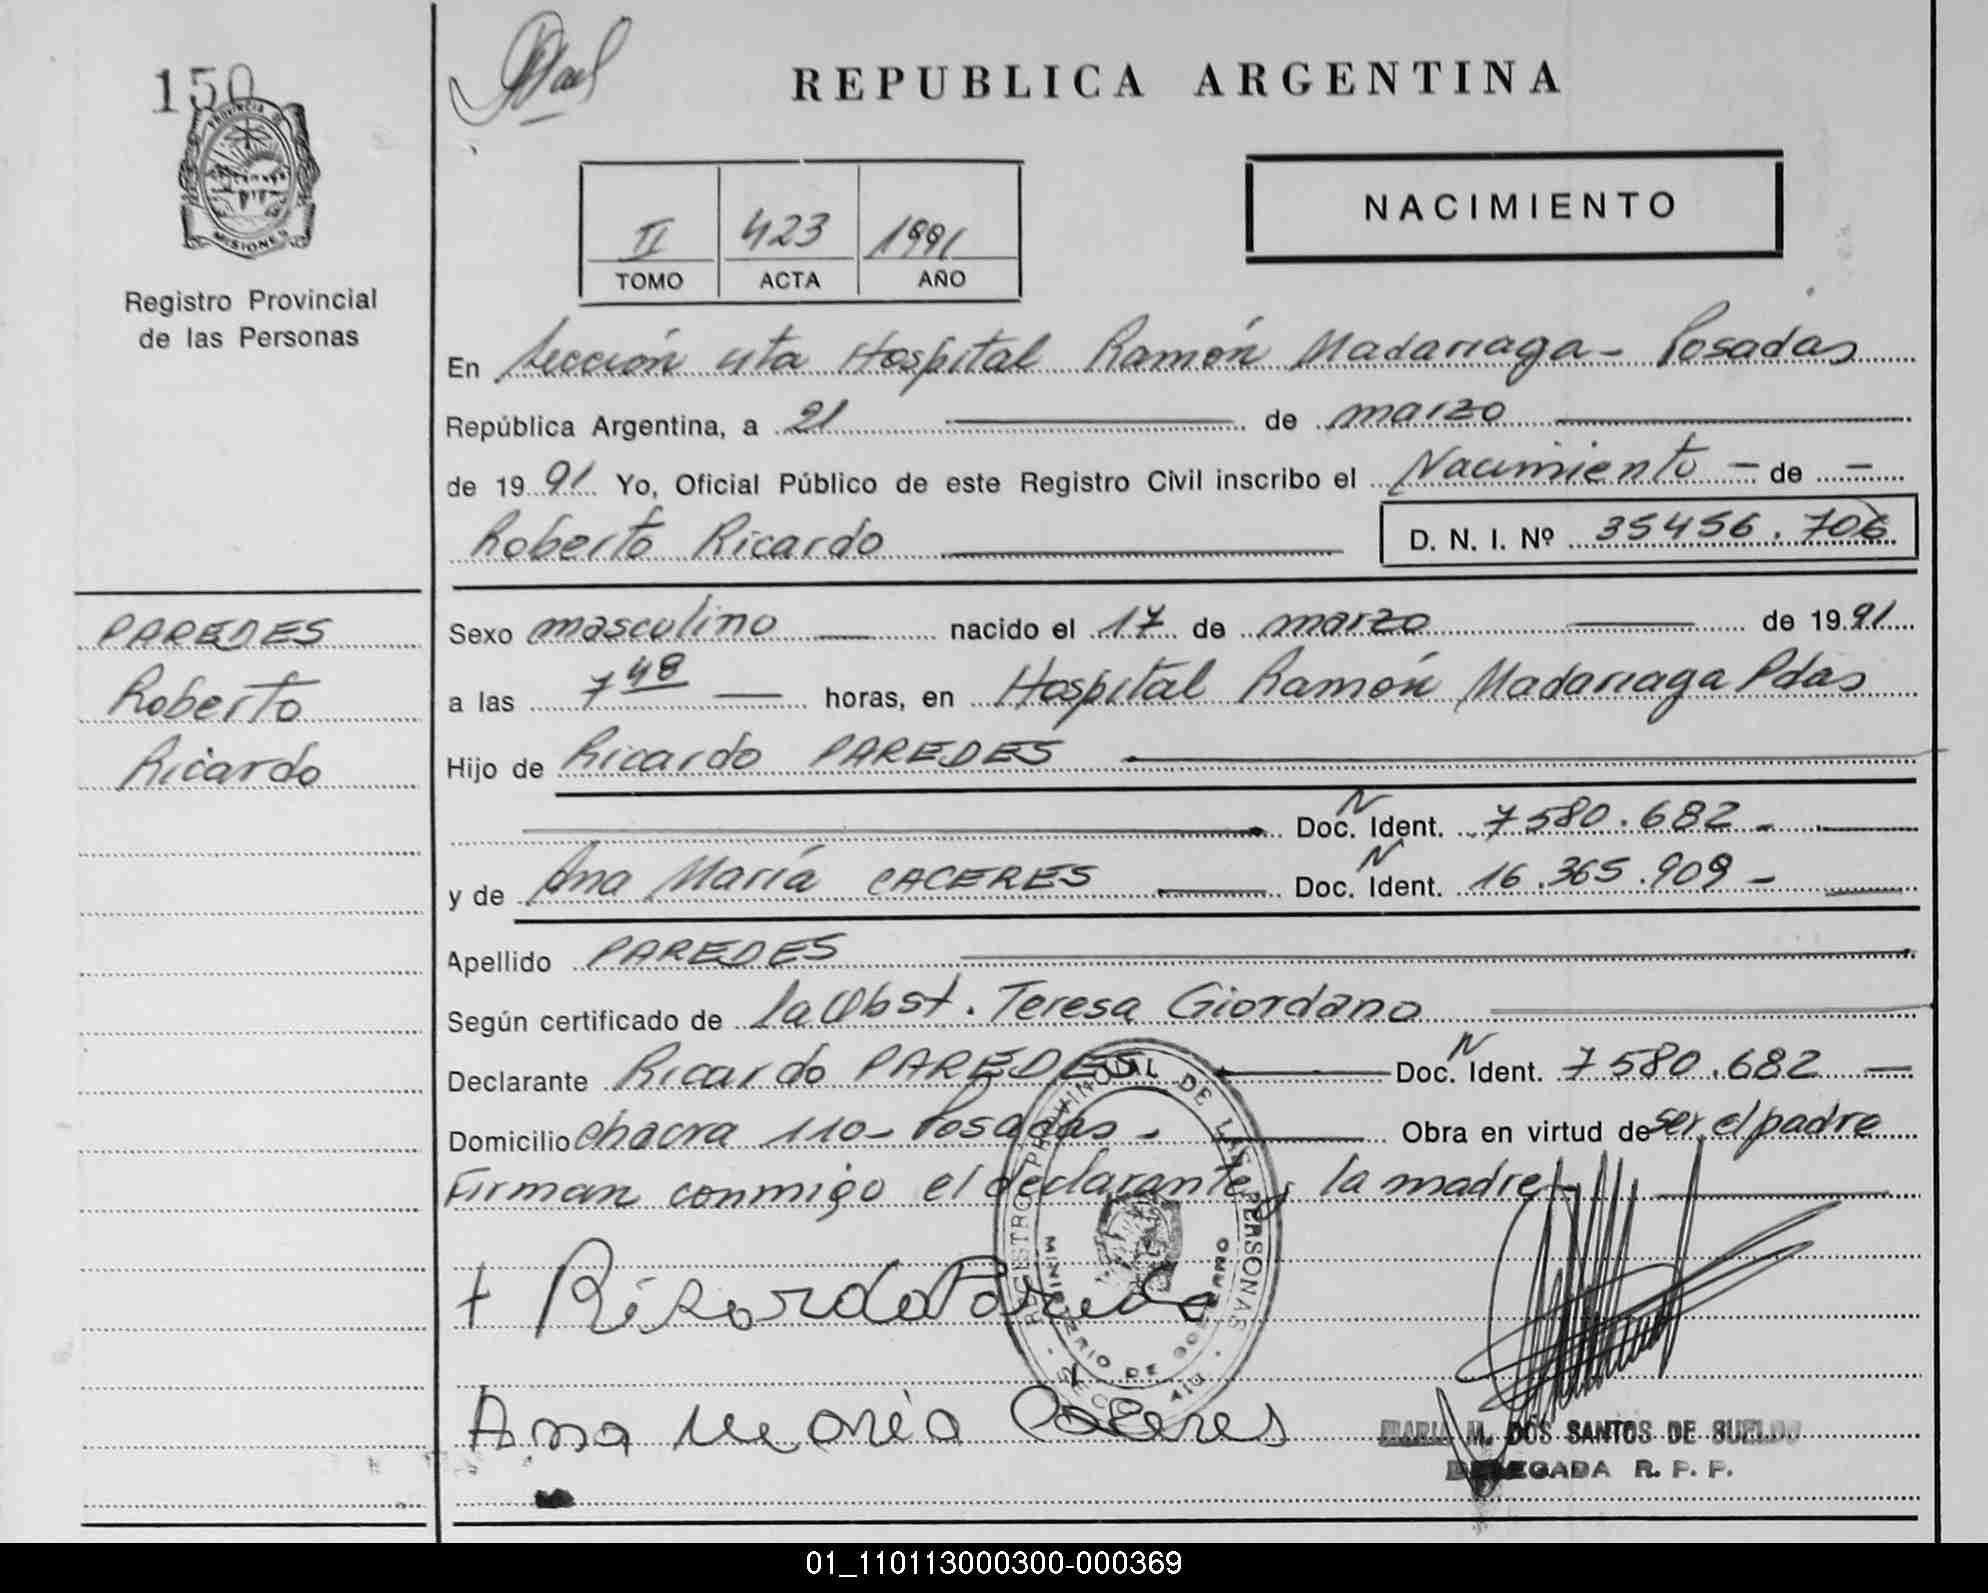 150
REPUBLICA ARGENTINA
PROVINCIA DE
MISIONES
Registro Provincial
de las Personas
II 423 1991
TOMO ACTA AÑO
NACIMIENTO
En Sección 4ta Hospital Ramón Madariaga - Posadas
República Argentina, a 21 de marzo
de 1991 Yo, Oficial Público de este Registro Civil inscribo el Nacimiento - de -
Roberto Ricardo D. N. I. Nº 35456.706
PAREDES
Roberto
Ricardo
Sexo masculino nacido el 17 de marzo de 1991
a las 7 48 horas, en Hospital Ramón Madariaga Pdas
Hijo de Ricardo PAREDES
Doc. N Ident. 7580.682 -
y de Ana María CACERES Doc. N Ident. 16.365.909 -
Apellido PAREDES
Según certificado de la Obst. Teresa Giordano
Declarante Ricardo PAREDES Doc. N Ident. 7580.682
Domicilio chacra 110 - Posadas - Obra en virtud de ser el padre
Firman conmigo el declarante y la madre
REGISTRO PROVINCIAL DE LAS PERSONAS
MINISTERIO DE GOBIERNO
+ Ricardo Paredes
Ana Maria Caceres
MARIA M. DOS SANTOS DE SUELDO
DELEGADA R. P. P.
01_110113000300-000369